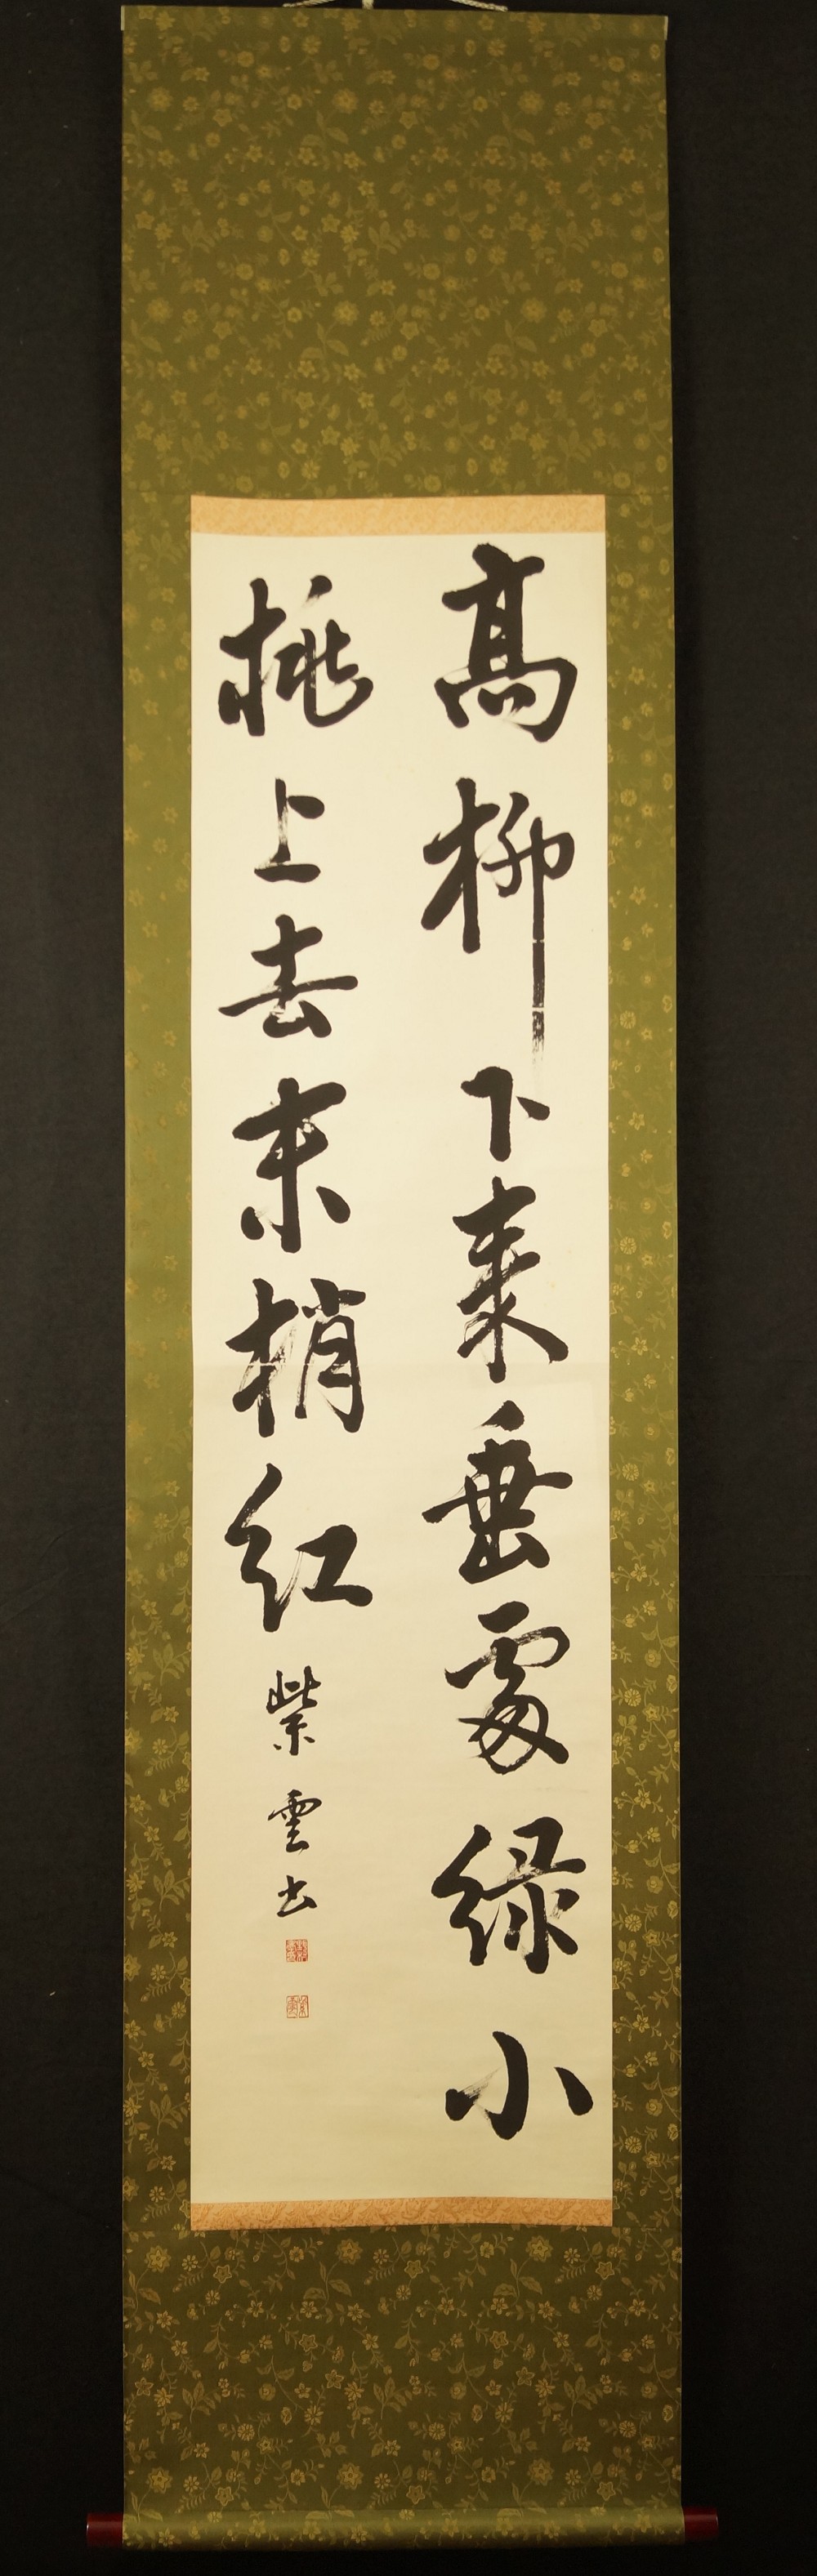 髙柳下來垂處緑小
桃上去末梢紅
紫雲書